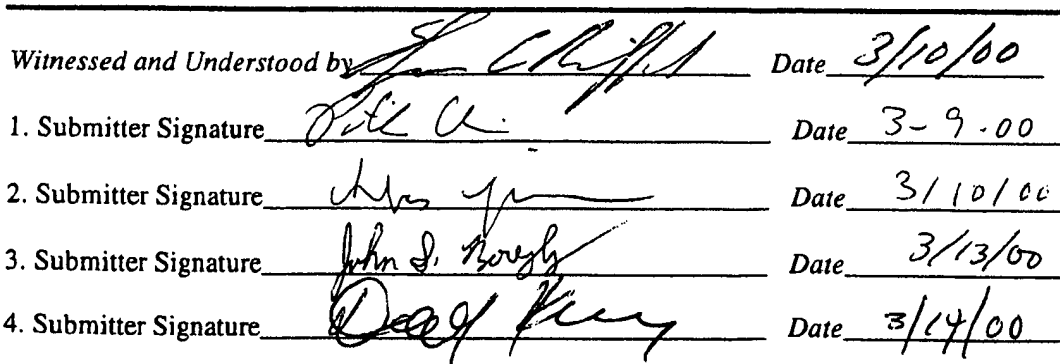 Witnessed and Understood by Date 3/10/00
1. Submitter Signature Date 3-9-00
2. Submitter Signature Date 3/10/00
3. Submitter Signature John S. Date 3/13/00
4. Submitter Signature Date 3/14/00